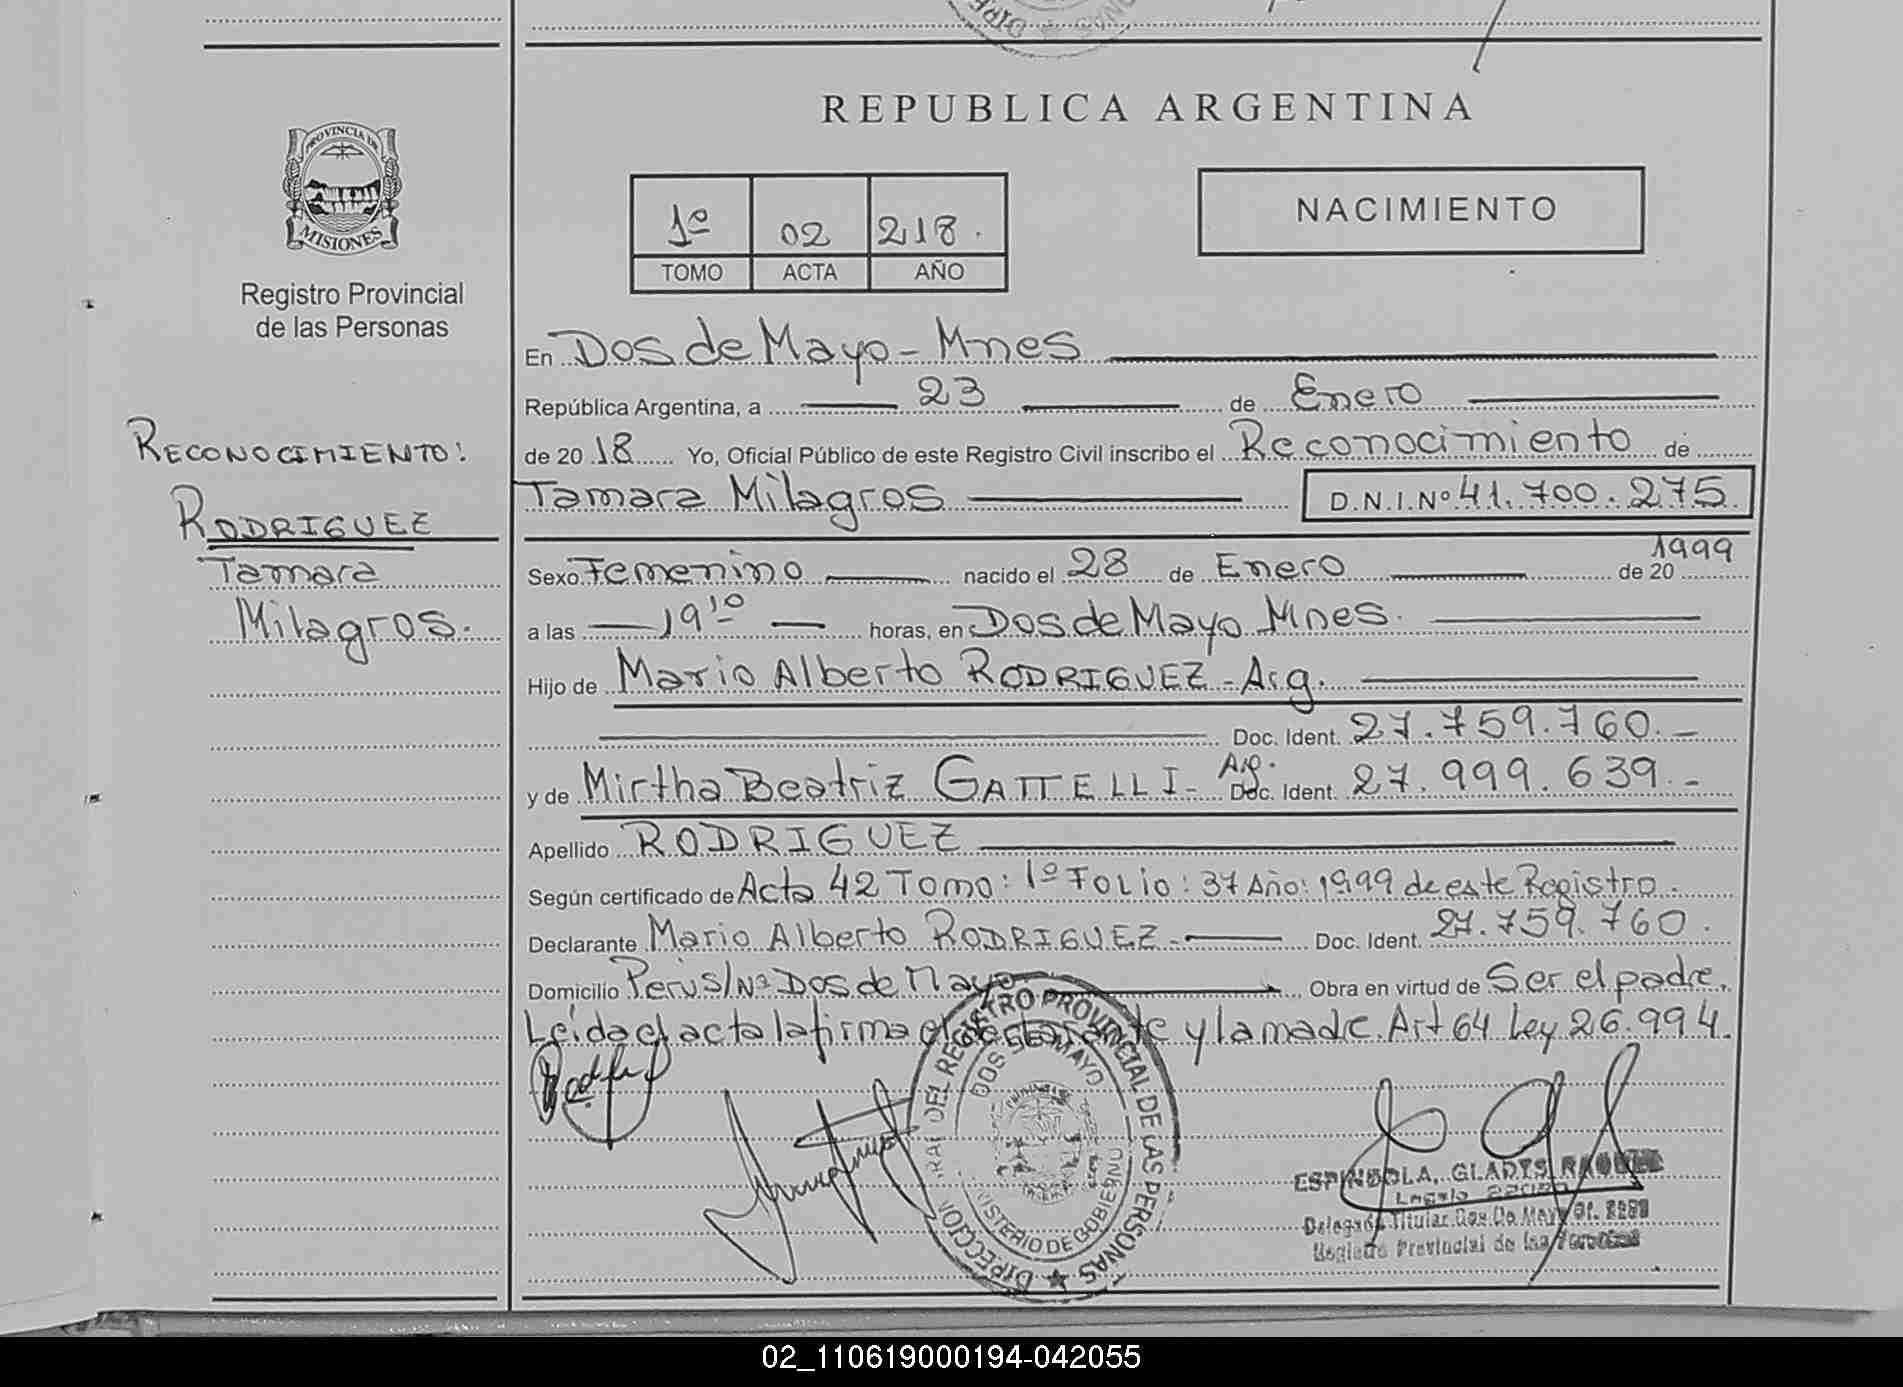 REPUBLICA ARGENTINA
PROVINCIA DE
MISIONES
Registro Provincial
de las Personas
1º 02 218.
TOMO ACTA AÑO
NACIMIENTO
RECONOCIMIENTO:
RODRIGUEZ
Tamara
Milagros.
En Dos de Mayo - Mnes
República Argentina, a 23 de Enero
de 20 18 Yo, Oficial Público de este Registro Civil inscribo el Reconocimiento de
Tamara Milagros D.N.I.Nº 41.700.275.
Sexo Femenino nacido el 28 de Enero de 20 1999
a las 19¹⁰ horas, en Dos de Mayo Mnes.
Hijo de Mario Alberto RODRIGUEZ - Arg.
Doc. Ident. 27.759.760.-
y de Mirtha Beatriz GATTELLI - Arg. Doc. Ident. 27.999.639.-
Apellido RODRIGUEZ
Según certificado de Acta 42 Tomo: 1º Folio: 37 Año: 1999 de este Registro.
Declarante Mario Alberto RODRIGUEZ - Doc. Ident. 27.759.760.
Domicilio Perú S/Nº Dos de Mayo Obra en virtud de Ser el padre.
Leída el acta la firma el declarante y la madre. Art 64 Ley 26.994.
DIRECCION GRAL DEL REGISTRO PROVINCIAL DE LAS PERSONAS
DOS DE MAYO
MINISTERIO DE GOBIERNO
ESPINDOLA, GLADYS
Delegada Titular Dos De Mayo
Registro Provincial de las Personas
02_110619000194-042055